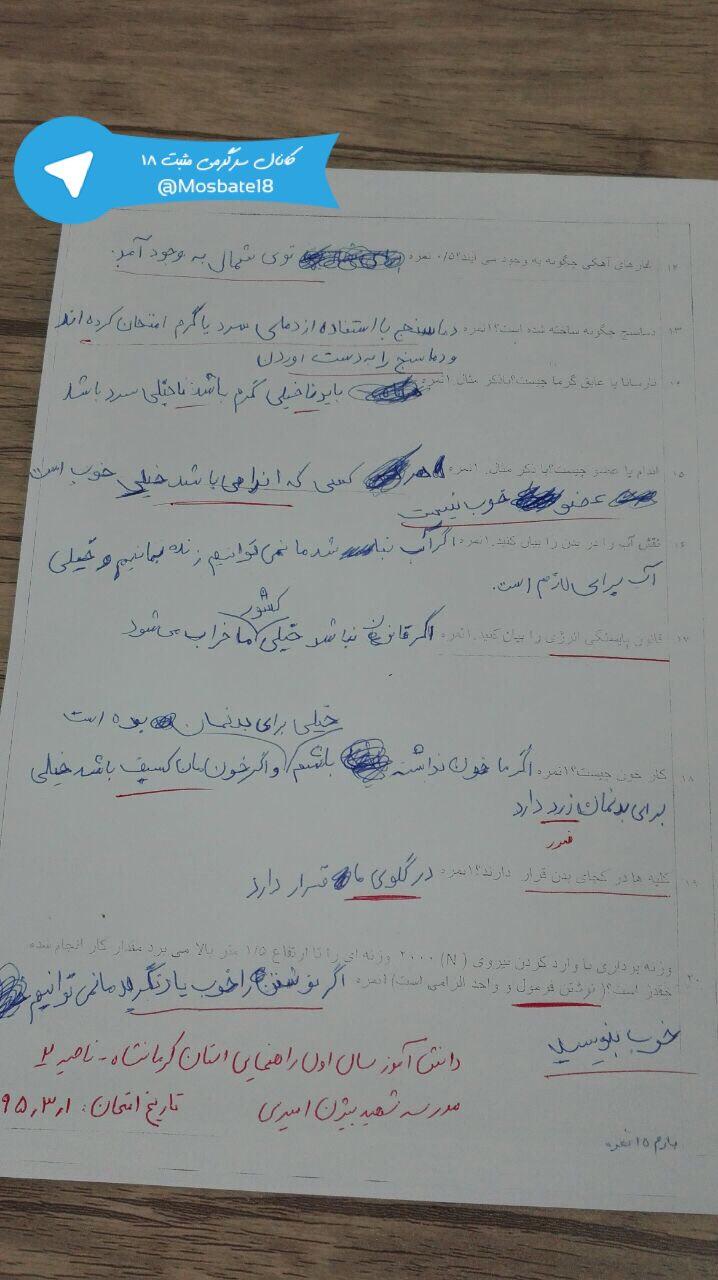 کانال سرگرمی مثبت ۱۸
@Mosbate18
۱۲ غارهای آهکی چگونه به وجود می آیند؟۰/۵ نمره توی شمال به وجود آمد.
۱۳ دماسنج چگونه ساخته شده است؟۱نمره دماسنج با استفاده از دمای سرد یا گرم امتحان کرده اند
و دماسنج را به دست اوردن
نارسانا یا عایق گرما چیست؟باذکر مثال ۱نمره باید یا خیلی گرم باشد یا خیلی سرد باشد
۱۵ اندام یا عضو چیست؟با ذکر مثال. ۱نمره هر کسی که اندامی باشد خیلی خوب است
عضو خوب نیست
۱۶ نقش آب را در بدن را بیان کنید.۱نمره اگر آب نباشد ما نمی توانیم زنده بمانیم و خیلی
آب برای لازم است.
کشور
۱۷ قانون پایستگی انرژی را بیان کنید.۱نمره اگر قانون نباشد خیلی ما خراب می شود
خیلی برای بدنمان بوده است
۱۸ کار خون چیست؟۱نمره اگر ما خون نداشته باشیم و اگر خون مان کسیف باشد خیلی
برای بدنمان زرد دارد
ضرر
۱۹ کلیه ها در کجای بدن قرار دارند؟۱نمره در گلوی ما قرار دارد
۲۰ وزنه برداری با وارد کردن نیروی (N) ۲۰۰۰ وزنه ای را تا ارتفاع ۱/۵ متر بالا می برد مقدار کار انجام شده
چقدر است؟(نوشتن فرمول و واحد الزامی است)۱نمره اگر نوشتن را خوب یاد نگیریم ما نمی توانیم
خوب بنویسیم
دانش آموز سال اول راهنمایی استان کرمانشاه - ناحیه ۲
مدرسه شهید بیژن امیری تاریخ امتحان: ۹۵٫۳٫۱
بارم ۱۵ نمره